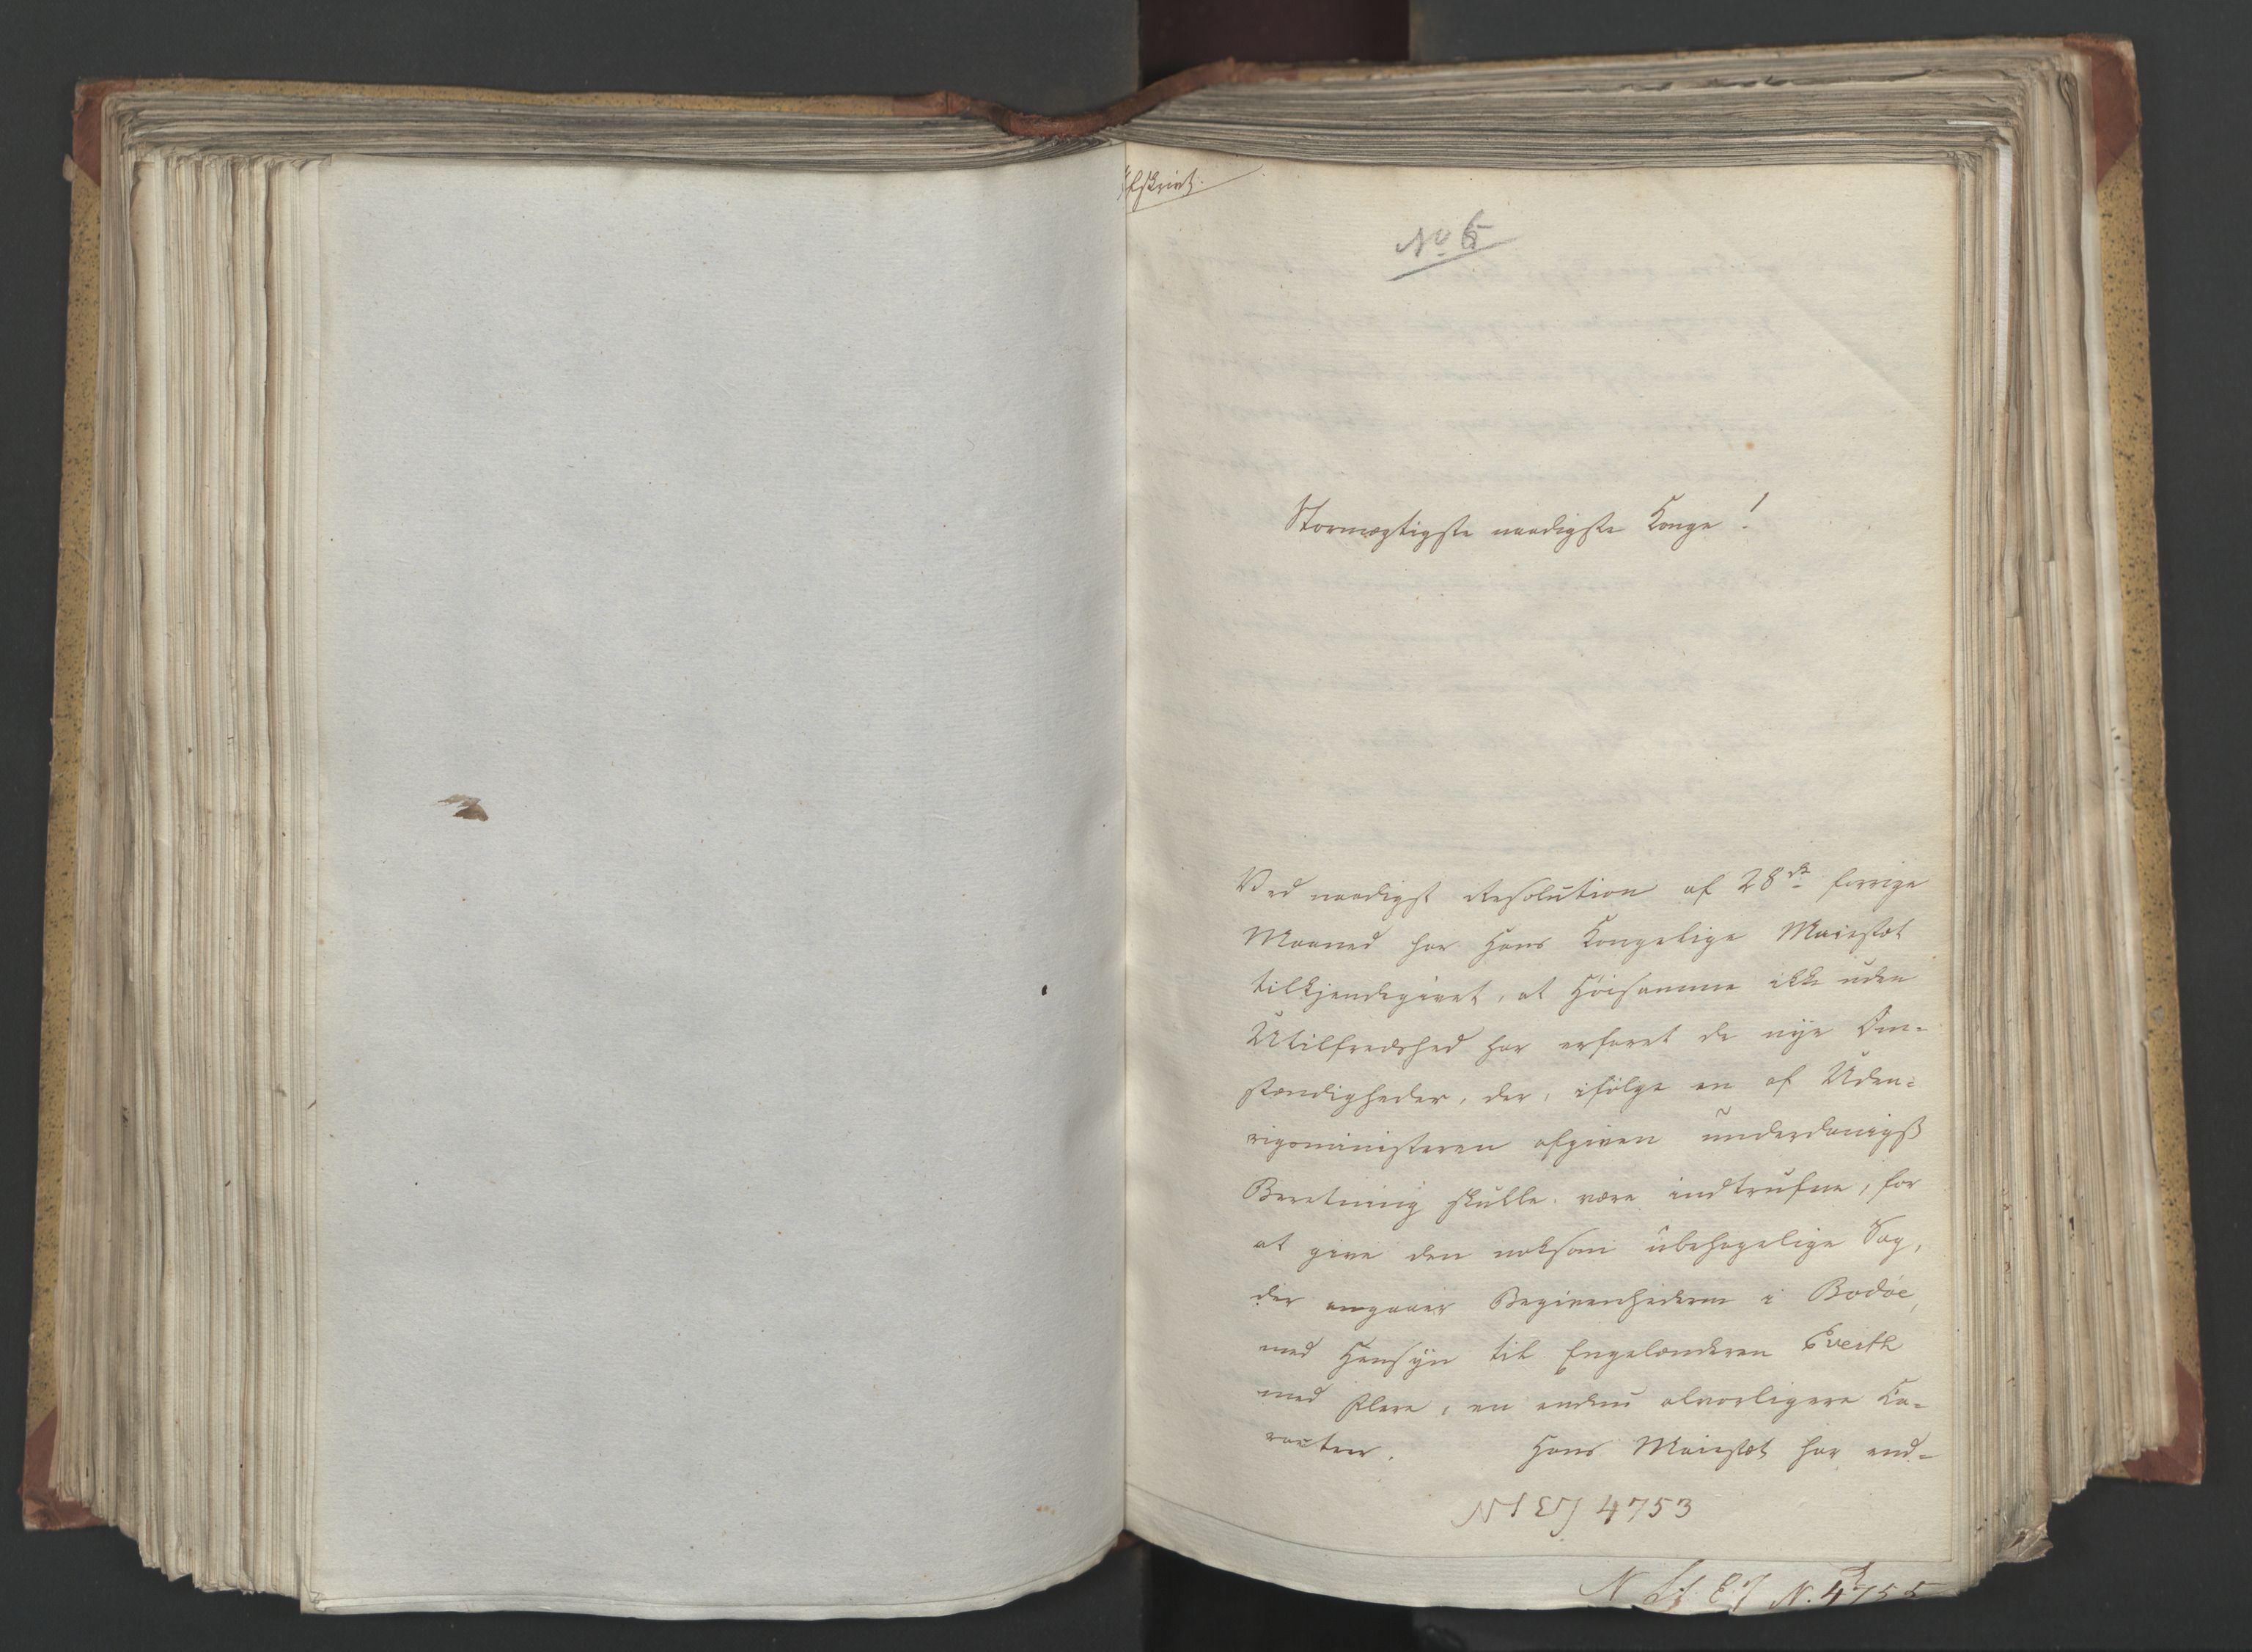 Afskrivt.
No 6
Stormægtigste naadigste Konge!
Ved naadigst Resolution af 28de forrige
Maaned har Hans Kongelige Maiestæt
tilkjendegivet, at Høisamme ikke uden
Utilfredshed har erfaret de nye Om-
stændigheder, der, ifølge en af Uden-
rigsministeren afgiven underdanigst
Beretning skulle være indtrufne, for
at give den noksom ubehagelige Sag,
der angaaer Begivenhederne i Bodøe,
med Hensyn til Engelænderen Everth
med Flere, en endnu alvorligere Ca-
racteer. Hans Maiestæt har end-
N S EJ 4753
N St EJ N. 4755